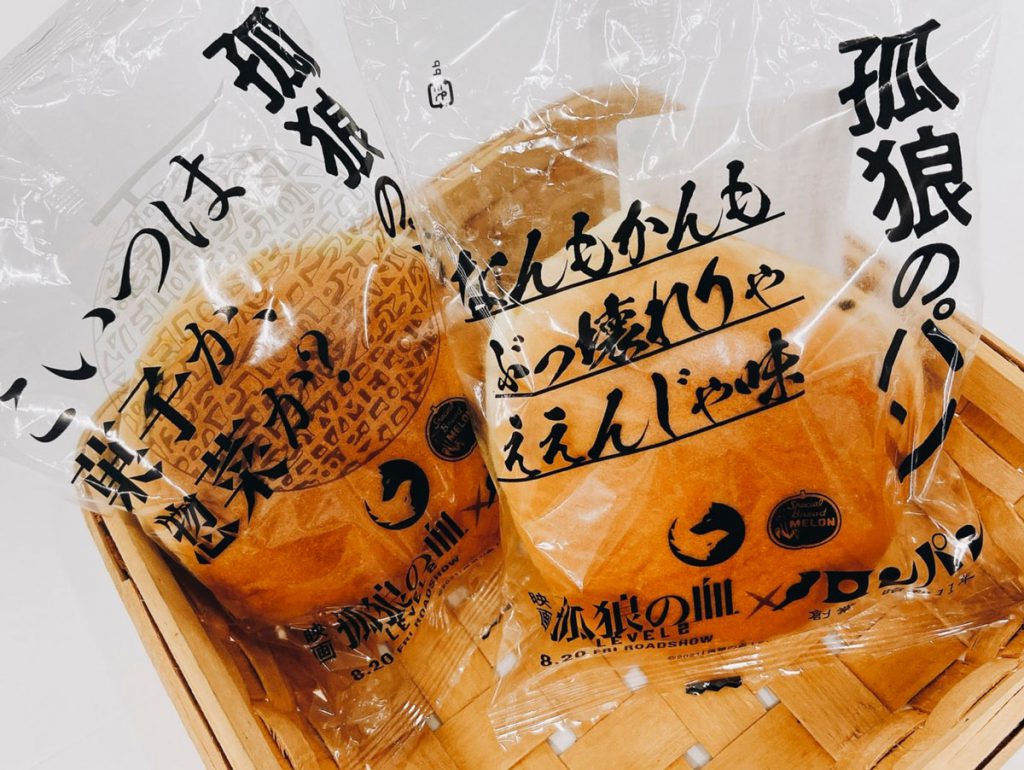 孤狼の
こいつは
菓子か、
惣菜か?
Special
Bread
MELON
映画 孤狼の血
LEVEL2
8.20 FRI ROADSHOW
×
孤狼のパン
なんもかんも
ぶっ壊れりゃ
ええんじゃ味
Special
Bread
MELON
映画 孤狼の血 × メロンパン
LEVEL2
8.20 FRI ROADSHOW